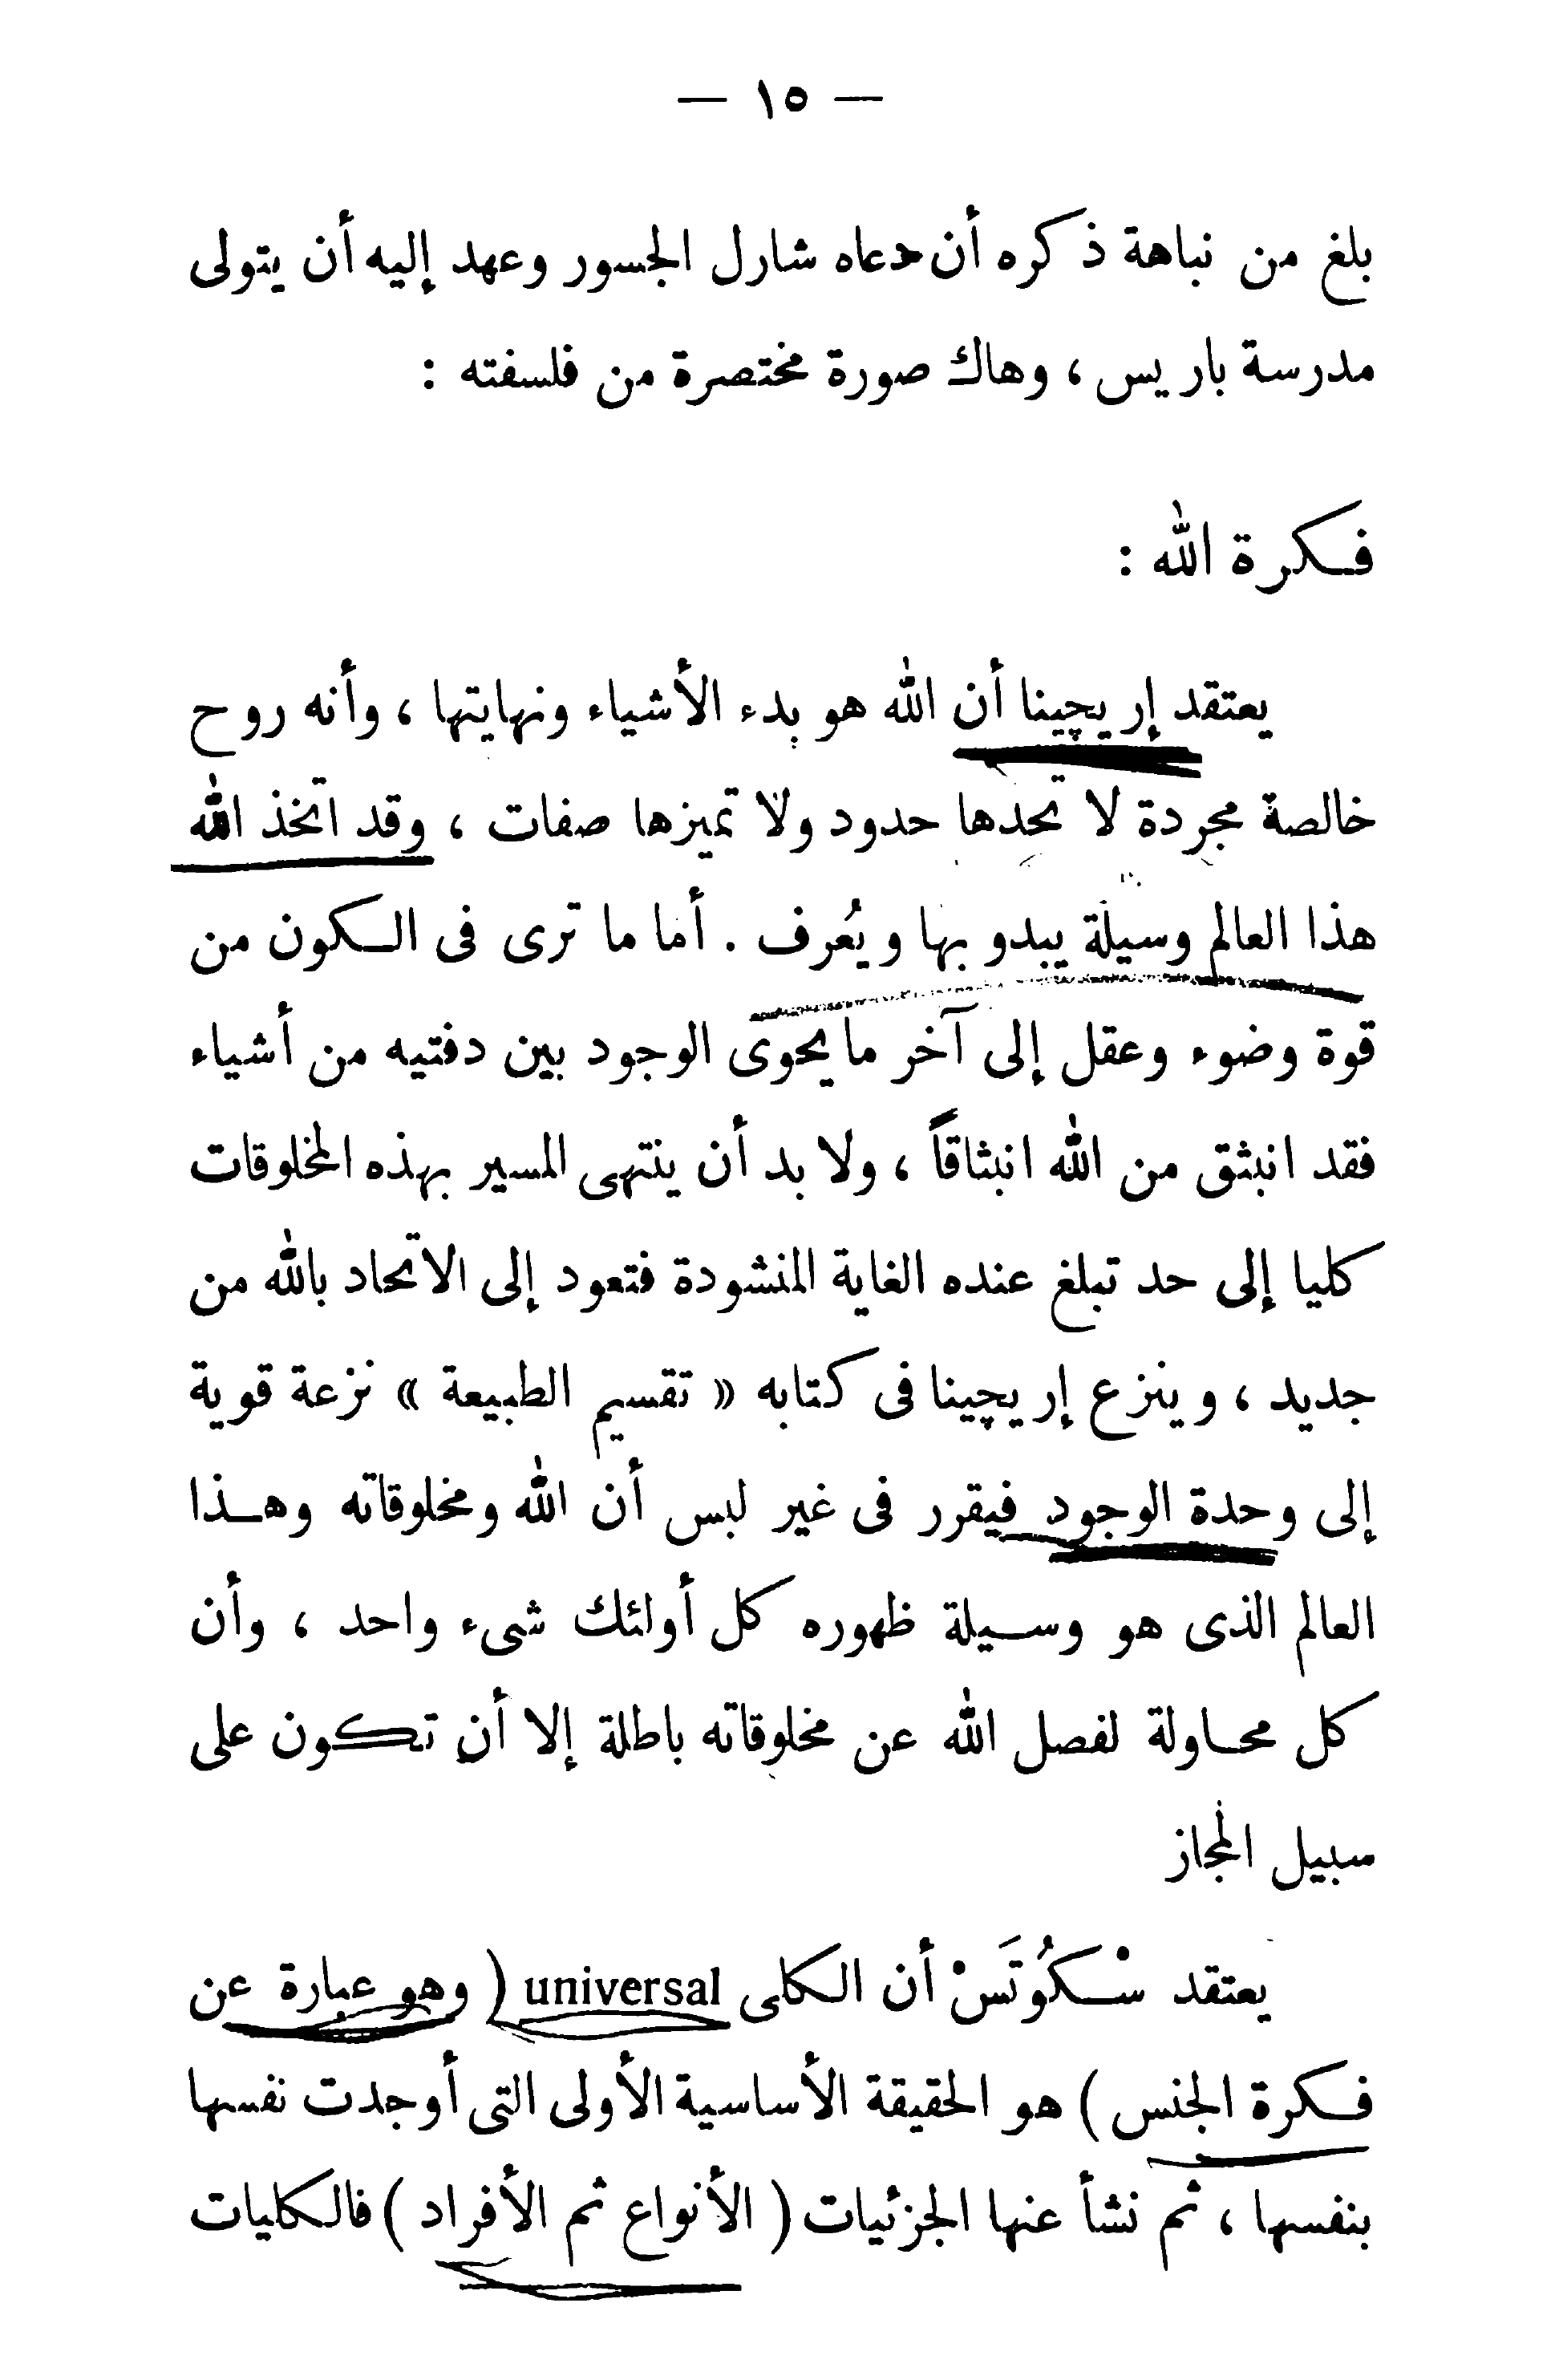 — ١٥ —
بلغ من نباهة ذكره أن دعاه شارل الجسور وعهد إليه أن يتولى
مدرسة باريس ، وهاك صورة مختصرة من فلسفته :
فكرة الله :
يعتقد إريچينا أن الله هو بدء الأشياء ونهايتها ، وأنه روح
خالصة مجردة لا تحدها حدود ولا تميزها صفات ، وقد اتخذ الله
هذا العالم وسيلة يبدو بها ويُعرف . أما ما ترى فى الكون من
قوة وضوء وعقل إلى آخر ما يحوى الوجود بين دفتيه من أشياء
فقد انبثق من الله انبثاقاً ، ولا بد أن ينتهى المسير بهذه المخلوقات
كليا إلى حد تبلغ عنده الغاية المنشودة فتعود إلى الاتحاد بالله من
جديد ، وينزع إريچينا فى كتابه « تقسيم الطبيعة » نزعة قوية
إلى وحدة الوجود فيقرر فى غير لبس أن الله ومخلوقاته وهذا
العالم الذى هو وسيلة ظهوره كل أولئك شىء واحد ، وأن
كل محاولة لفصل الله عن مخلوقاته باطلة إلا أن تكون على
سبيل المجاز
يعتقد سْكُوتَسْ أن الكلى universal ( وهو عبارة عن
فكرة الجنس ) هو الحقيقة الأساسية الأولى التى أوجدت نفسها
بنفسها ، ثم نشأ عنها الجزئيات ( الأنواع ثم الأفراد ) فالكليات